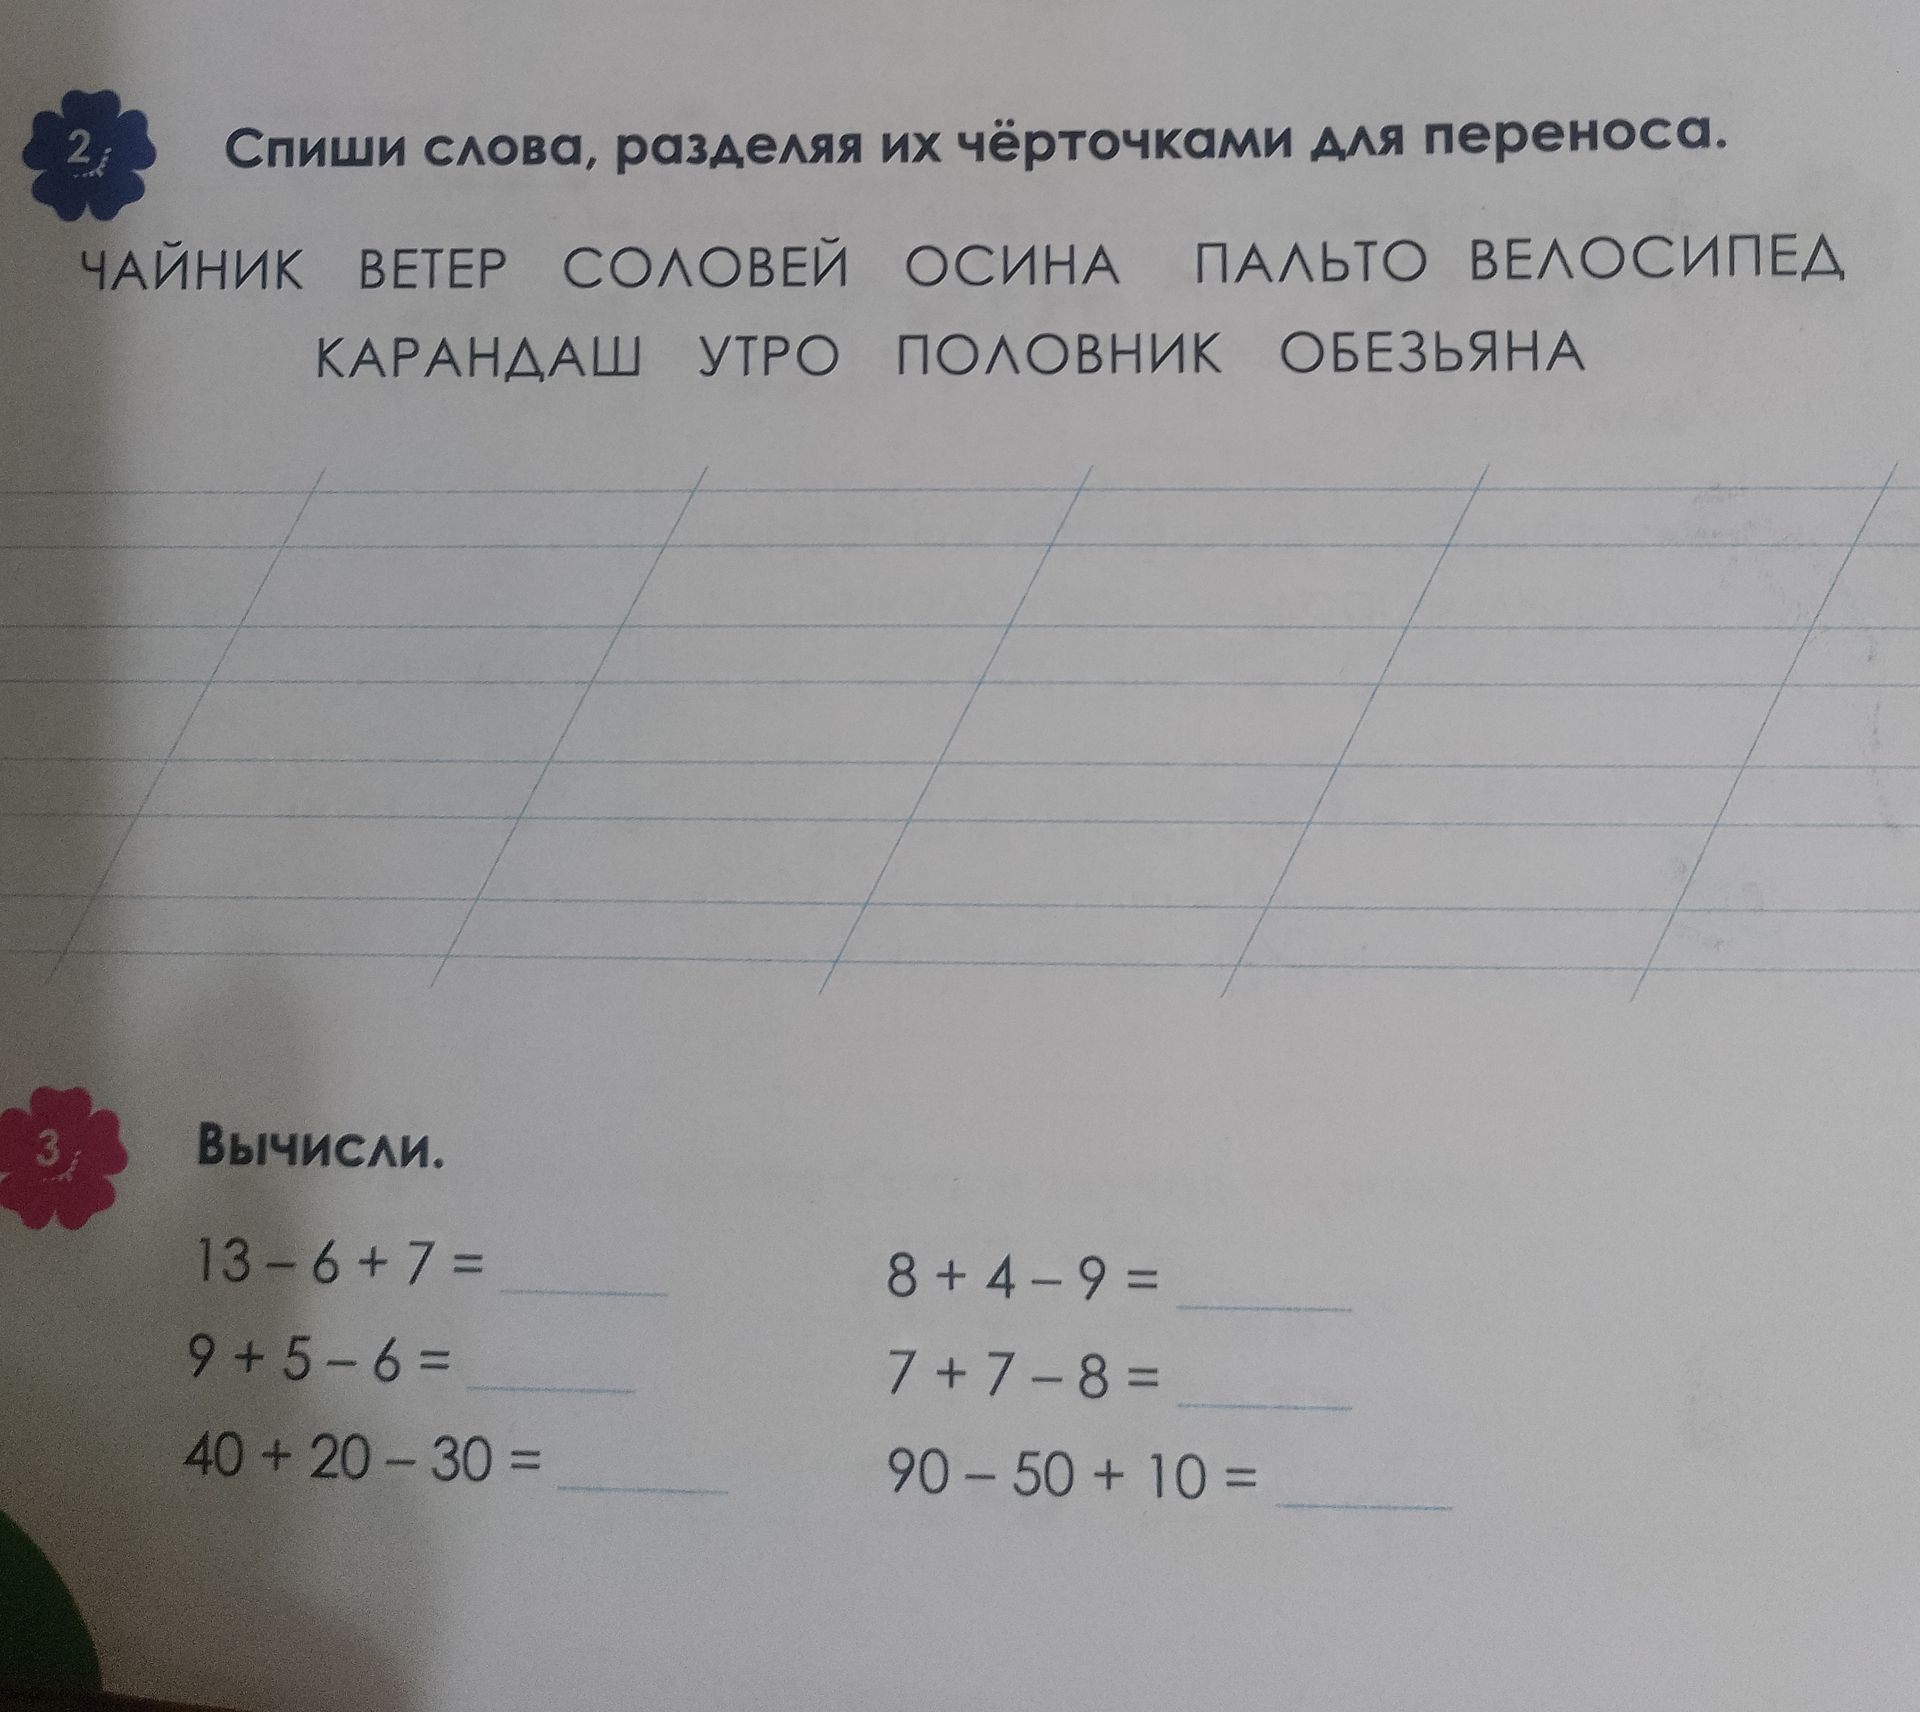 2
Спиши слова, разделяя их чёрточками для переноса.
ЧАЙНИК ВЕТЕР СОЛОВЕЙ ОСИНА ПАЛЬТО ВЕЛОСИПЕД
КАРАНДАШ УТРО ПОЛОВНИК ОБЕЗЬЯНА
3
Вычисли.
13 – 6 + 7 = 
8 + 4 – 9 = 
9 + 5 – 6 = 
7 + 7 – 8 = 
40 + 20 – 30 = 
90 – 50 + 10 =